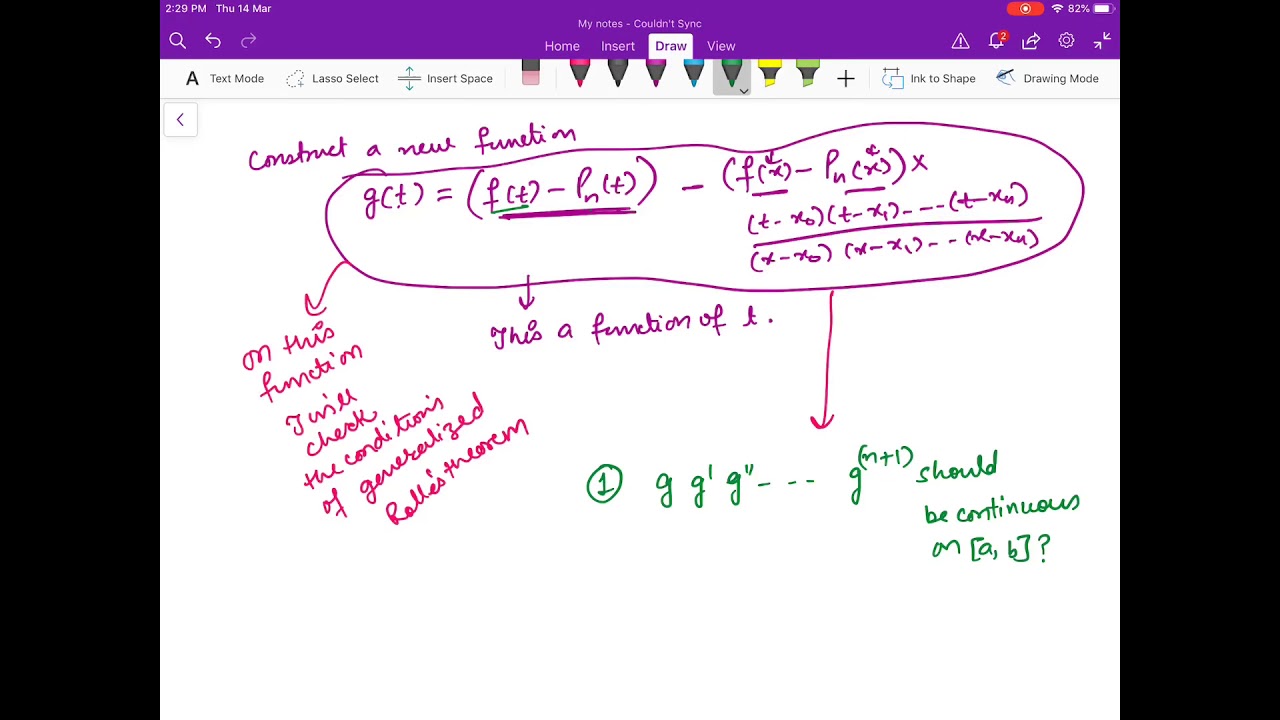 2:29 PM Thu 14 Mar
82%
My notes - Couldn't Sync
Home Insert Draw View
2
A Text Mode Lasso Select Insert Space + Ink to Shape Drawing Mode
Construct a new function
g(t) = (f(t) - Pn(t)) - (f(x) - Pn(x)) ×
(t-x₀)(t-x₁)- - --(t-xn)
(x-x₀) (x-x₁)- - -(x-xn)
This a function of t.
on this
function
I will
check
the conditions
of generalized
Rolle's theorem
① g g' g"- - - - g⁽ⁿ⁺¹⁾ should
be continuous
on [a, b]?